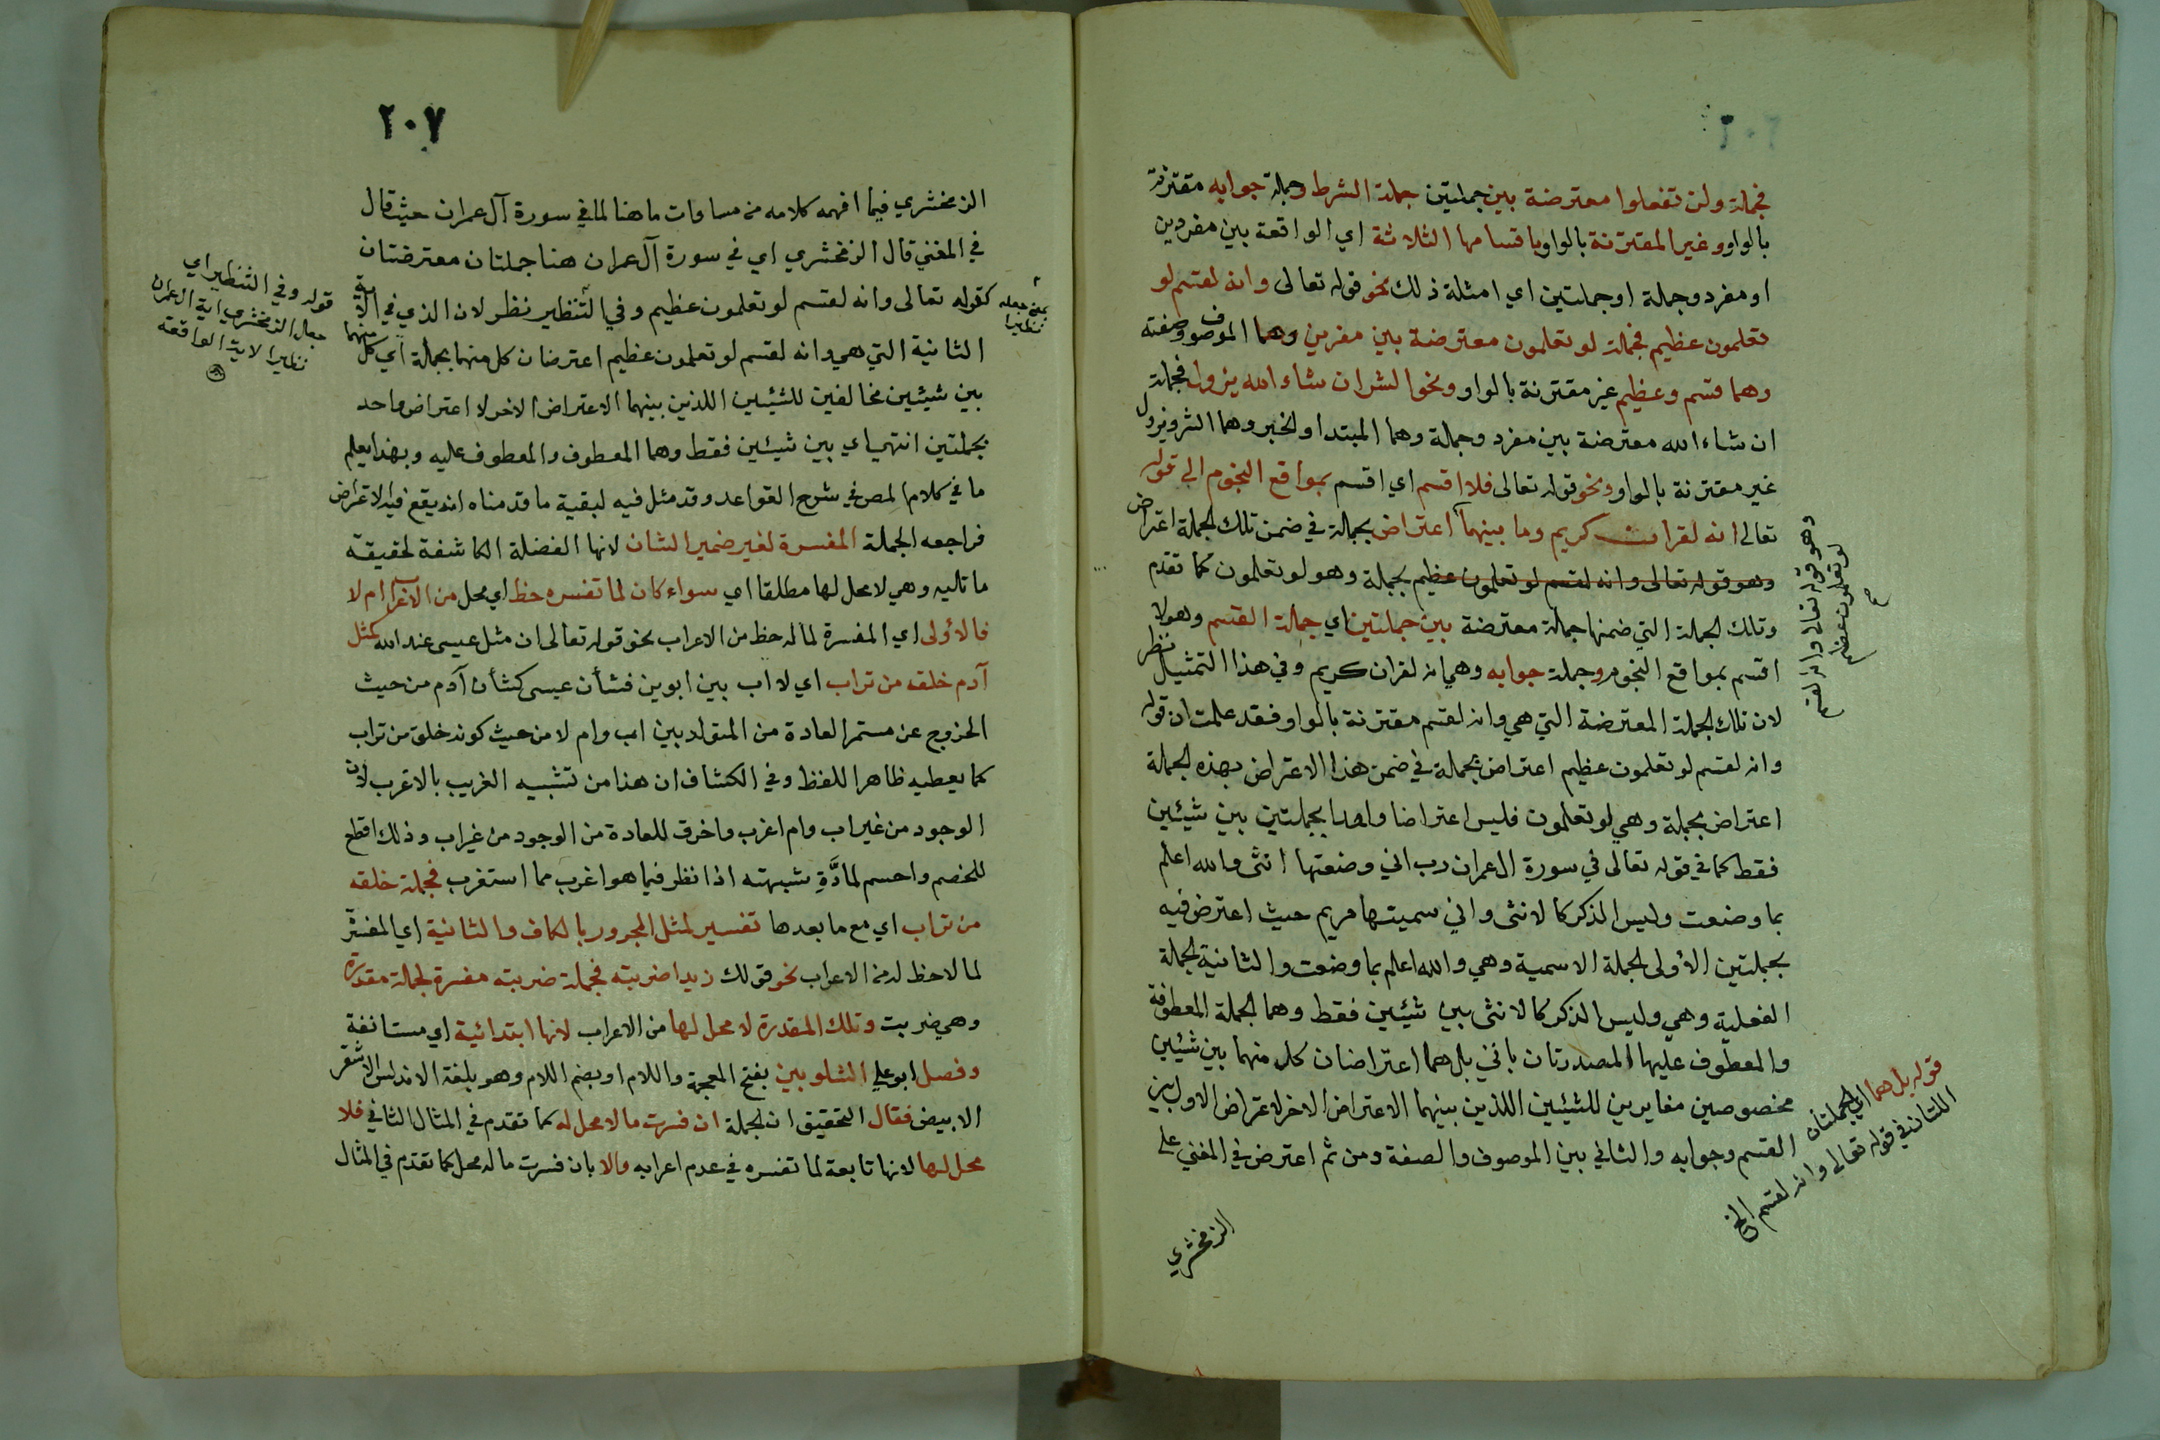 فجملة ولن تفعلوا معترضة بين جملتين جملة الشرط وجملة جوابه مقترنة
بالواو وغير المقترنة بالواو باقسامها الثلاثة اي الواقعة بين مفردين
او مفرد وجملة او جملتين اي امثلة ذلك نحو قوله تعالى وانه لقسم لو
تعلمون عظيم فجملة لو تعلمون معترضة بين مفردين وهما الموصوف وصفته
وهما قسم وعظيم غير مقترنة بالواو ونحو الشر ان شاء الله يزول فجملة
ان شاء الله معترضة بين مفرد وجملة وهما المبتدا والخبر وهما الشر ويزول
غير مقترنة بالواو ونحو قوله تعالى فلا اقسم اي اقسم بمواقع النجوم الى قوله
تعالى انه لقران كريم وما بينهما اعتراض بجملة في ضمن تلك الجملة اعتراض
وهو قوله تعالى وانه لقسم لو تعلمون عظيم بجملة وهو لو تعلمون كما تقدم
وتلك الجملة التي ضمنها جملة معترضة بين جملتين اي جملة القسم وهو لا
اقسم بمواقع النجوم وجملة جوابه وهي انه لقران كريم وفي هذا التمثيل نظر
لان تلك الجملة المعترضة التي هي وانه لقسم مقترنة بالواو فقد علمت ان قوله
وانه لقسم لو تعلمون عظيم اعتراض بجملة في ضمن هذا الاعتراض بهذه الجملة
اعتراض بجملة وهي لو تعلمون فليس اعتراضا واحدا بجملتين بين شيئين
فقط كما في قوله تعالى في سورة ال عمران رب اني وضعتها انثى والله اعلم
بما وضعت وليس الذكر كالانثى واني سميتها مريم حيث اعترض فيه
بجملتين الأولى الجملة الاسمية وهي والله اعلم بما وضعت والثانية الجملة
الفعلية وهي وليس الذكر كالانثى بين شيئين فقط وهما الجملة المعطوفة
والمعطوف عليها المصدرتان باني بل هما اعتراضان كل منهما بين شيئين
مخصوصين مغايرين للشيئين اللذين بينهما الاعتراض الاخر لاعتراض الاول بين
القسم وجوابه والثاني بين الموصوف والصفة ومن ثم اعترض في المغني على
الزمخشري
وهو قوله تعالى وانه لقسم
لو تعلمون عظيم
صح
قوله بل هما اي الجملتان
اللتان في قوله تعالى وانه لقسم الخ
٢٠٧
الزمخشري فيما افهمه كلامه من مساوات ما هنا لما في سورة آل عمران حيث قال
في المغني قال الزمخشري اي في سورة آل عمران هنا جملتان معترضتان
كقوله تعالى وانه لقسم لو تعلمون عظيم وفي التنظير نظر لان الذي في الآية
الثانية التي هي وانه لقسم لو تعلمون عظيم اعتراضان كل منهما بجملة اي كل منهما
بين شيئين مخالفين للشيئين اللذين بينهما الاعتراض الاخر لا اعتراض واحد
بجملتين انتهى اي بين شيئين فقط وهما المعطوف والمعطوف عليه وبهذا يعلم
ما في كلام المص في شرح القواعد وقد مثل فيه لبقية ما قدمناه انه يقع فيه الاعتراض
فراجعه الجملة المفسرة لغير ضمير الشان لانها الفضلة الكاشفة لحقيقة
ما تليه وهي لا محل لها مطلقا اي سواء كان لما تفسره حظ اي محل من الاعراب ام لا
فالأولى اي المفسرة لما له حظ من الاعراب نحو قوله تعالى ان مثل عيسى عند الله كمثل
آدم خلقه من تراب اي لا اب بين ابوين فشأن عيسى كشأن آدم من حيث
الخروج عن مستمر العادة من المتولد بين اب وام لا من حيث كونه خلق من تراب
كما يعطيه ظاهر اللفظ وفي الكشاف ان هذا من تشبيه الغريب بالاغرب لان
الوجود من غير اب وام اغرب واخرق للعادة من الوجود من غير اب وذلك اقطع
للخصم واحسم لمادَّة شبهته اذا نظر فيما هو اغرب مما استغرب فجملة خلقه
من تراب اي مع ما بعدها تفسير لمثل المجرور بالكاف والثانية اي المفسّر
لما لا حظ له من الاعراب نحو قولك زيدا ضربته فجملة ضربته مفسرة لجملة مقدرة
وهي ضربت وتلك المقدرة لا محل لها من الاعراب لانها ابتدائية اي مستانفة
وفصل ابو علي الشلوبين بفتح المعجمة واللام او بضم اللام وهو بلغة الاندلس الاشقر
الابيض فقال التحقيق ان الجملة ان فسرت ما لا محل له كما تقدم في المثال الثاني فلا
محل لها لانها تابعة لما تفسره في عدم اعرابه والا بان فسرت ما له محل كما تقدم في المثال
يعني جعله
نظيرا
قوله وفي التنظير اي
جعل الزمخشري اية ال عمران
نظير الاية الواقعة